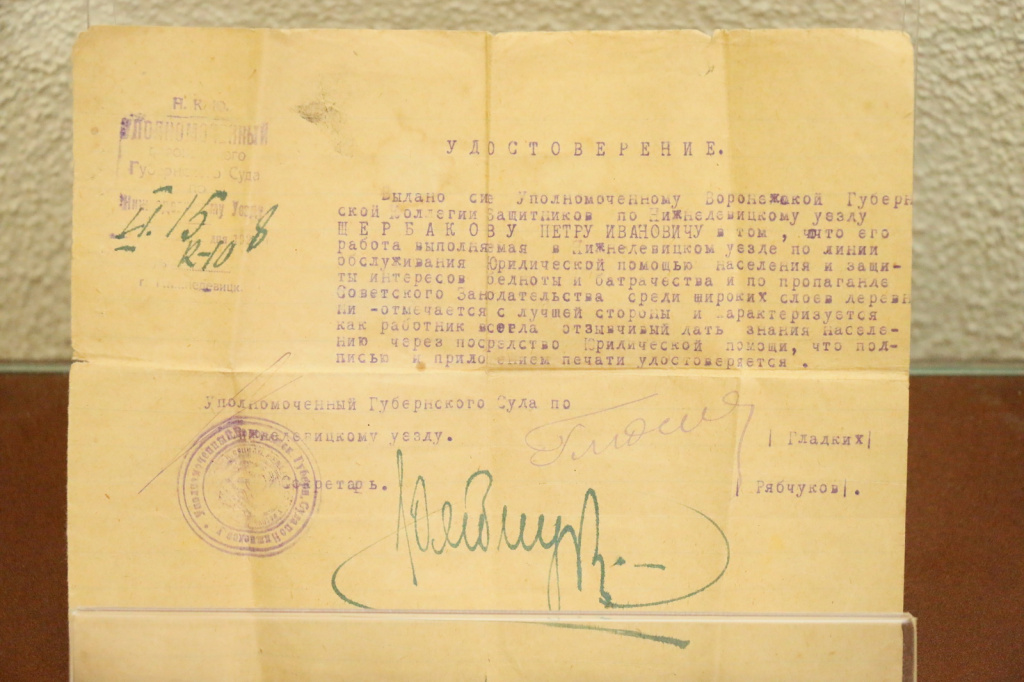 Н. К. Ю.
УПОЛНОМОЧЕННЫЙ
Губернского Суда
15
8
УДОСТОВЕРЕНИЕ.
Выдано сие Уполномоченному Воронежской Губерн
ской Коллегии Защитников по Нижнедевицкому уезду
ЩЕРБАКОВУ ПЕТРУ ИВАНОВИЧУ в том, что его
работа выполняемая в Нижнедевицком уезде по линии
обслуживания Юридической помощью населения и защи-
ты интересов бедноты и батрачества и по пропаганде
Советского Занодательства среди широких слоев деревн
ни -отмечается с лучшей стороны и характеризуется
как работник всегда отзывчивый дать знания населе-
нию через посредство Юридической помощи, что под-
писью и приложением печати удостоверяется .
Уполномоченный Губернского Суда по
Нижнедевицкому уезду.
| Гладких|
Секретарь.
| Рябчуков|.